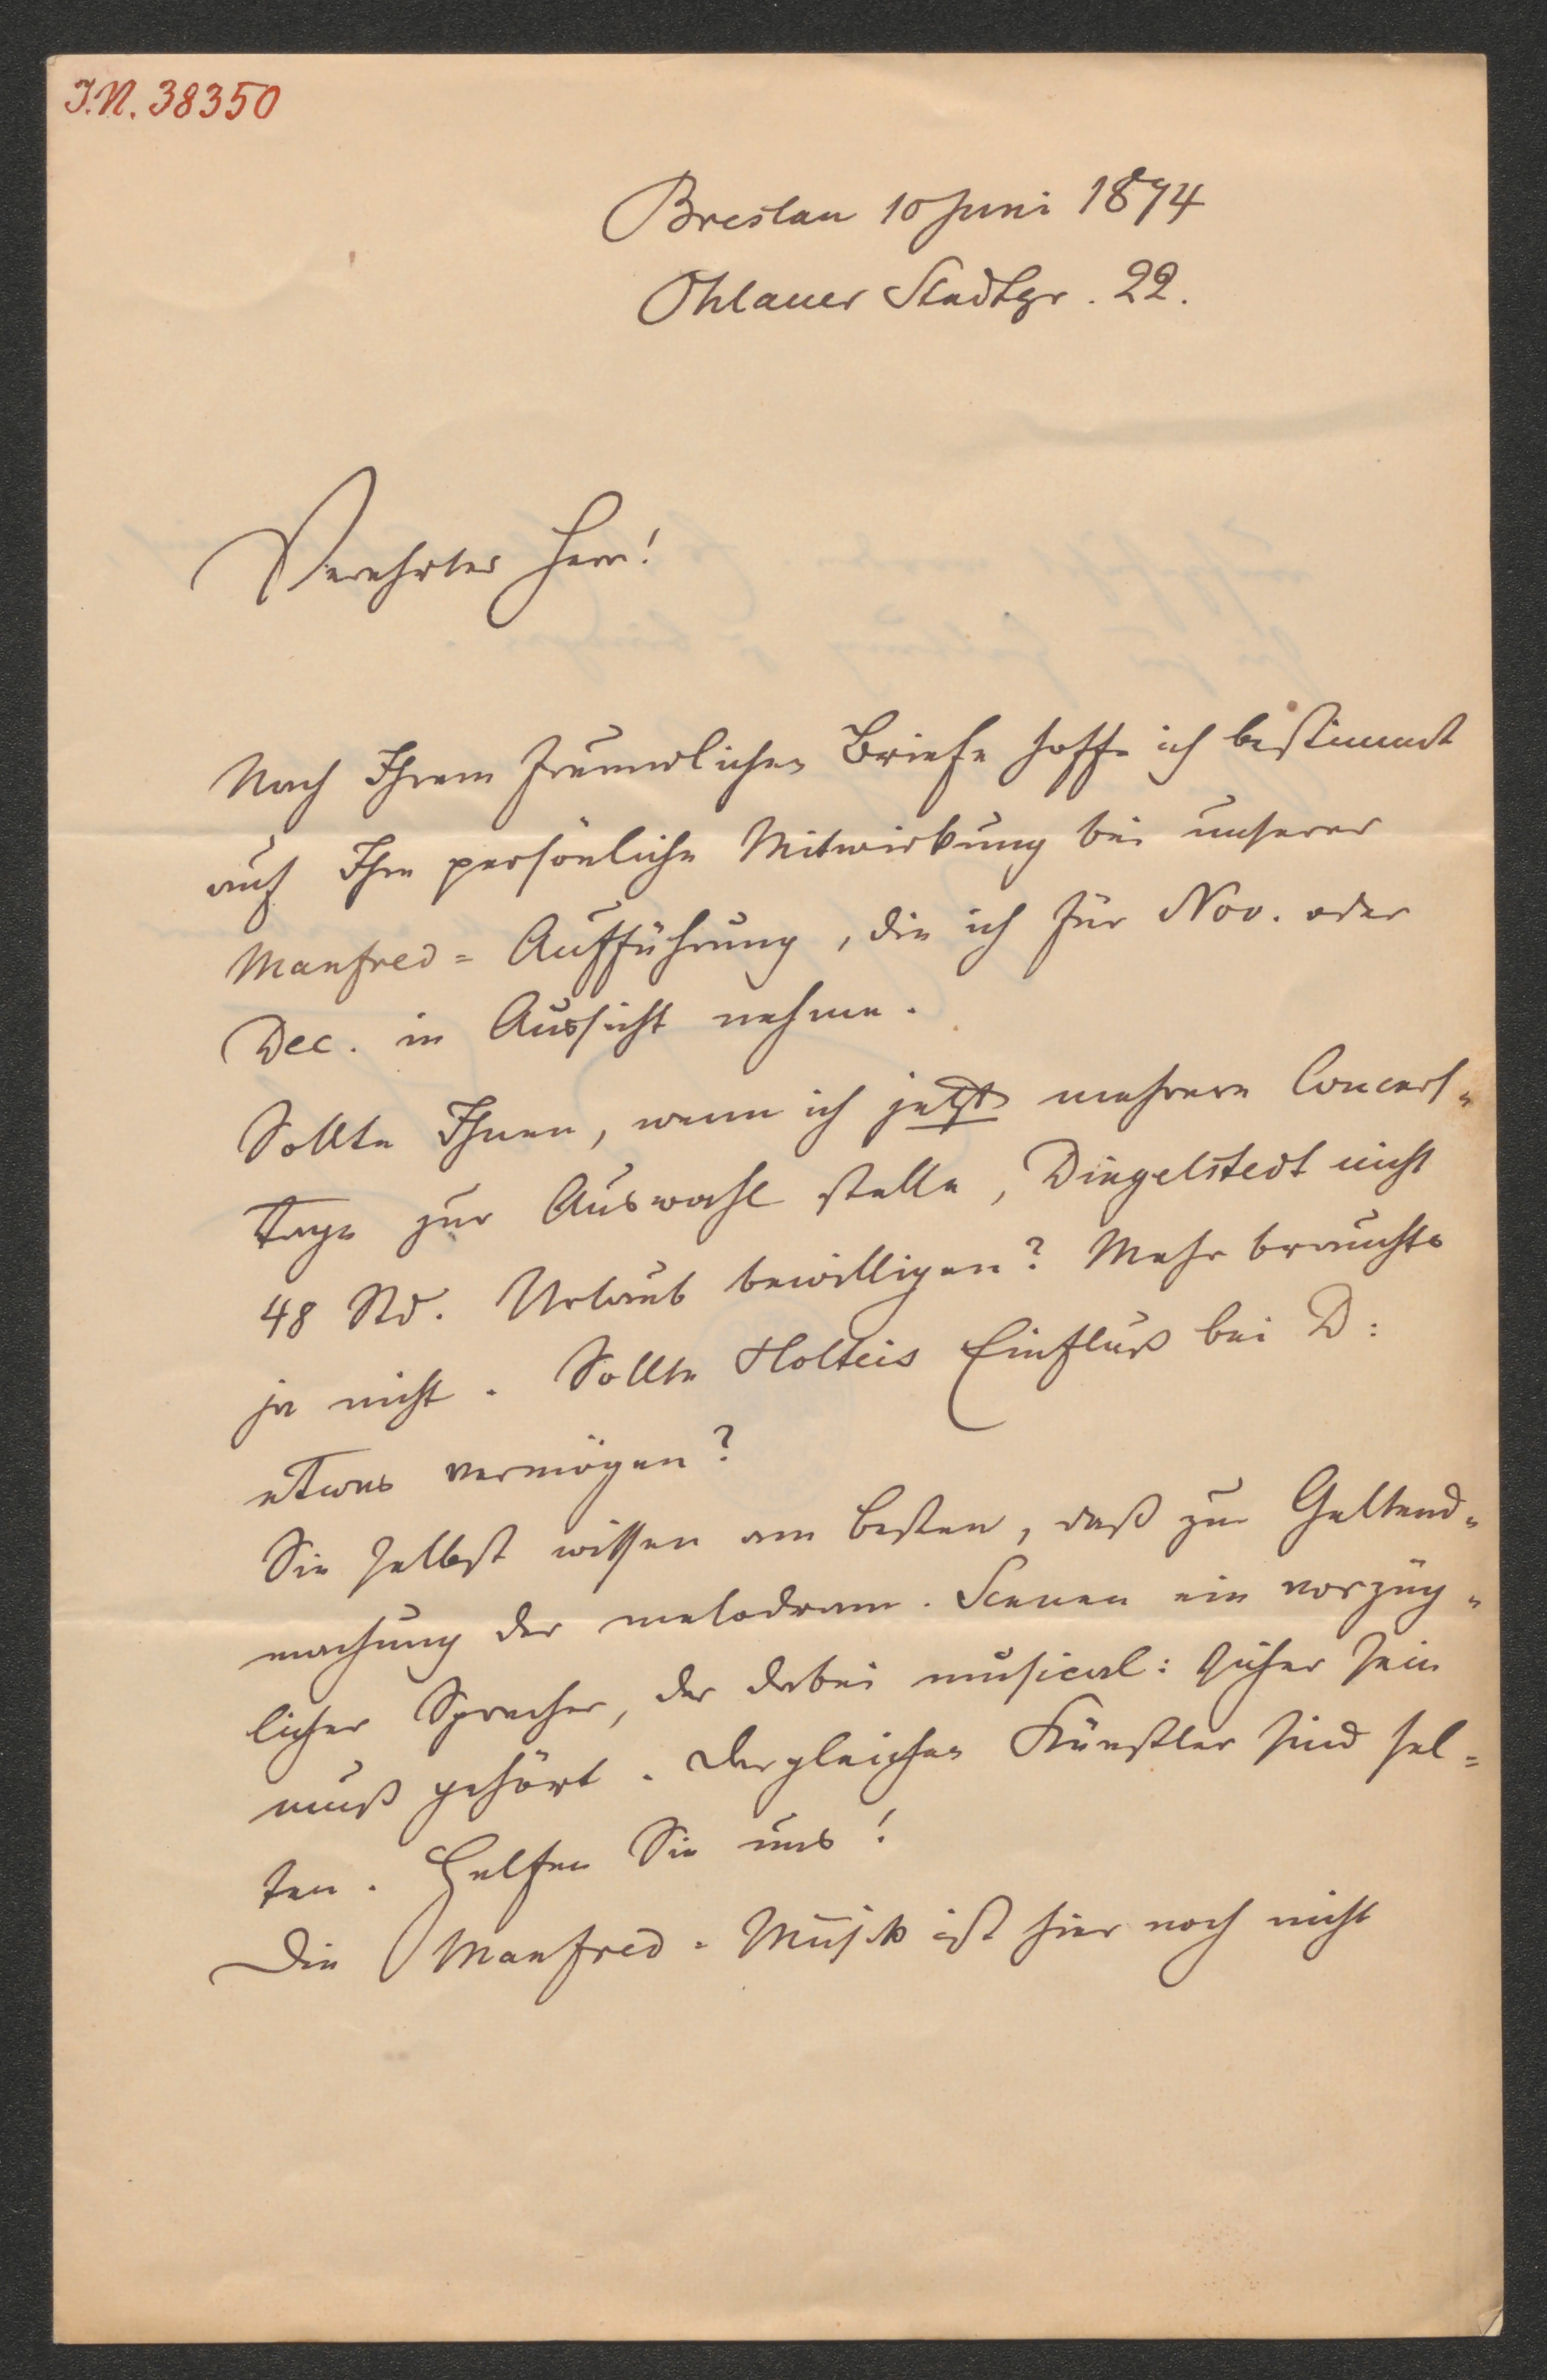 J.N. 38350
Breslau 10 Juni 1874
Ohlauer Stadtgr. 22.
Verehrter Herr!
Nach Ihrem freundlichen Briefe hoffe ich bestimmt
auf Ihre persönliche Mitwirkung bei unserer
Manfred=Aufführung, die ich für Nov. oder
Dec. in Aussicht nehme.
Sollte Ihnen, wenn ich jetzt mehrere Concert=
tage zur Auswahl stelle, Dingelstedt nicht
48 Std. Urlaub bewilligen? Mehr brauchts
ja nicht. Sollte Holteis Einfluß bei D:
etwas vermögen?
Sie selbst wissen am besten, daß zur Geltend=
machung der melodram. Scenen ein vorzüg=
licher Sprecher, der dabei musical: sicher sein
muß gehört. Dergleichen Künstler sind sel=
ten. Helfen Sie uns!
Die Manfred=Musik ist hier noch nicht